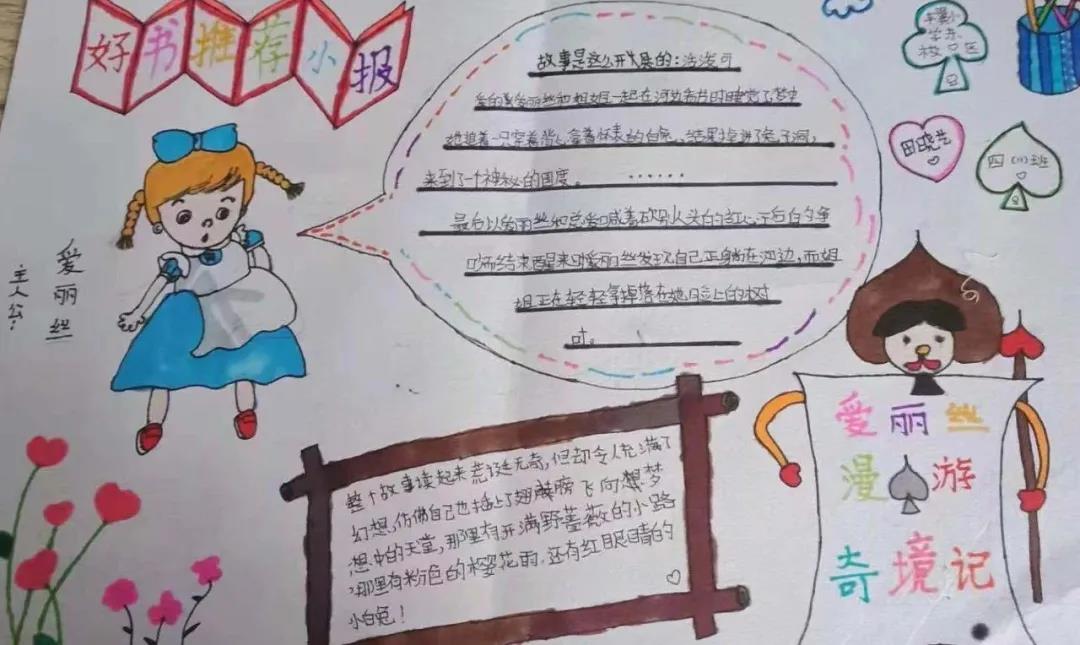 好书推荐小报
故事是这么开展的：活泼可
爱的爱丽丝和姐姐一起在河边看书时睡着了梦中
她追着一只穿着背心拿着怀表的白兔，结果掉进了兔子洞，
来到了一个神秘的国度。……
最后以爱丽丝和总爱喊着砍别人头的红心王后的争
吵而结束醒来时爱丽丝发现了自己正躺在河边，而姐
姐正在轻轻拿掉落在她脸上的树
叶。
主人公：
爱丽丝
校区
田晓艺
四（1）班
整个故事读起来荒诞无奇，但却令人充满了
幻想，仿佛自己也插上了翅膀飞向梦
想中的天堂，那里有开满野蔷薇的小路
那里有粉色的樱花雨，还有红眼睛的
小白兔！
爱丽丝
漫游
奇境记